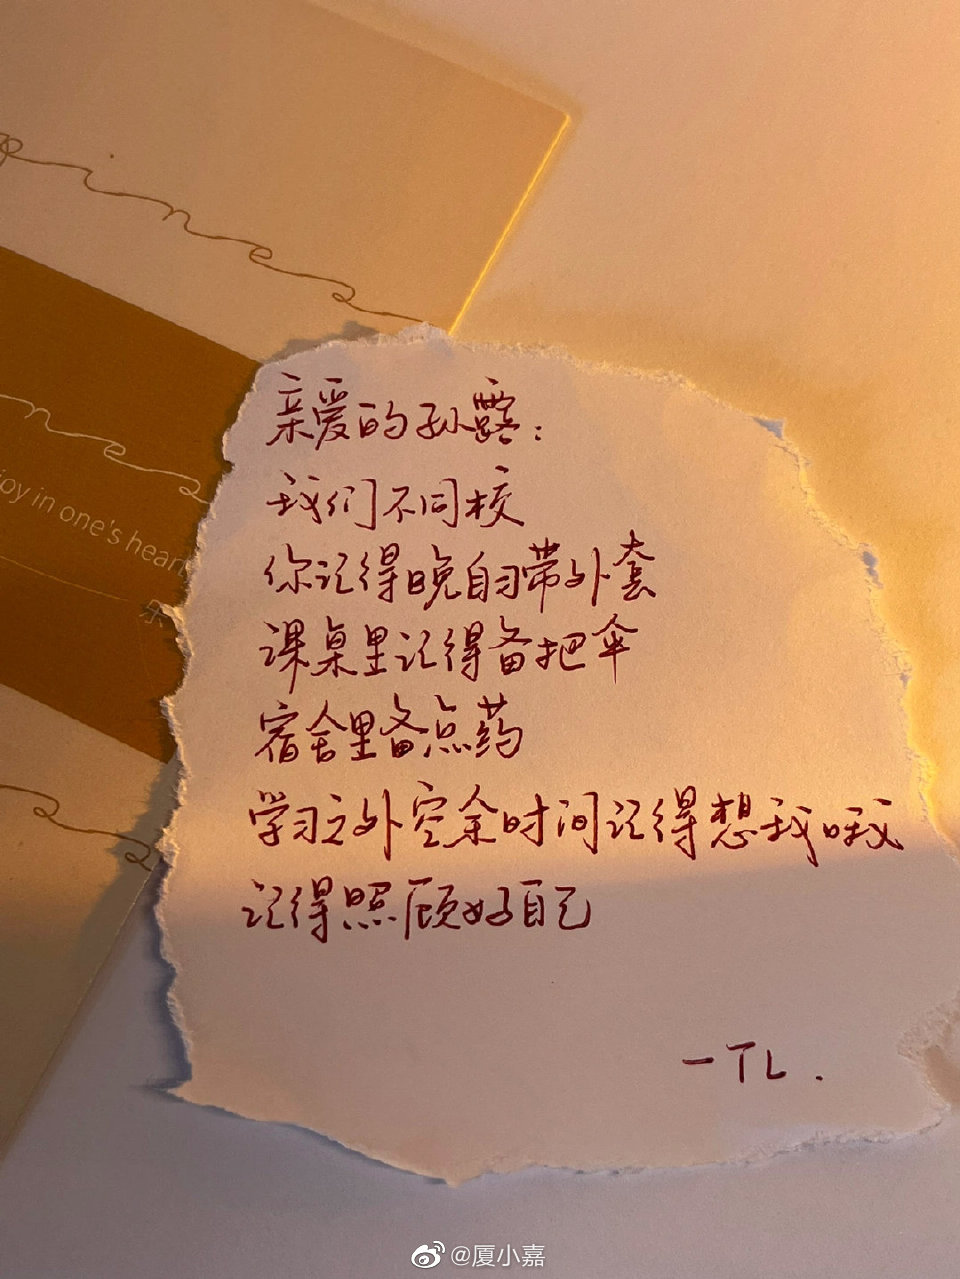 pines
joy in one's heart
亲爱的孙露：
我们不同校
你记得晚自习带外套
课桌里记得备把伞
宿舍里备点药
学习之外空余时间记得想我哦
记得照顾好自己
一TL.
@厦小嘉